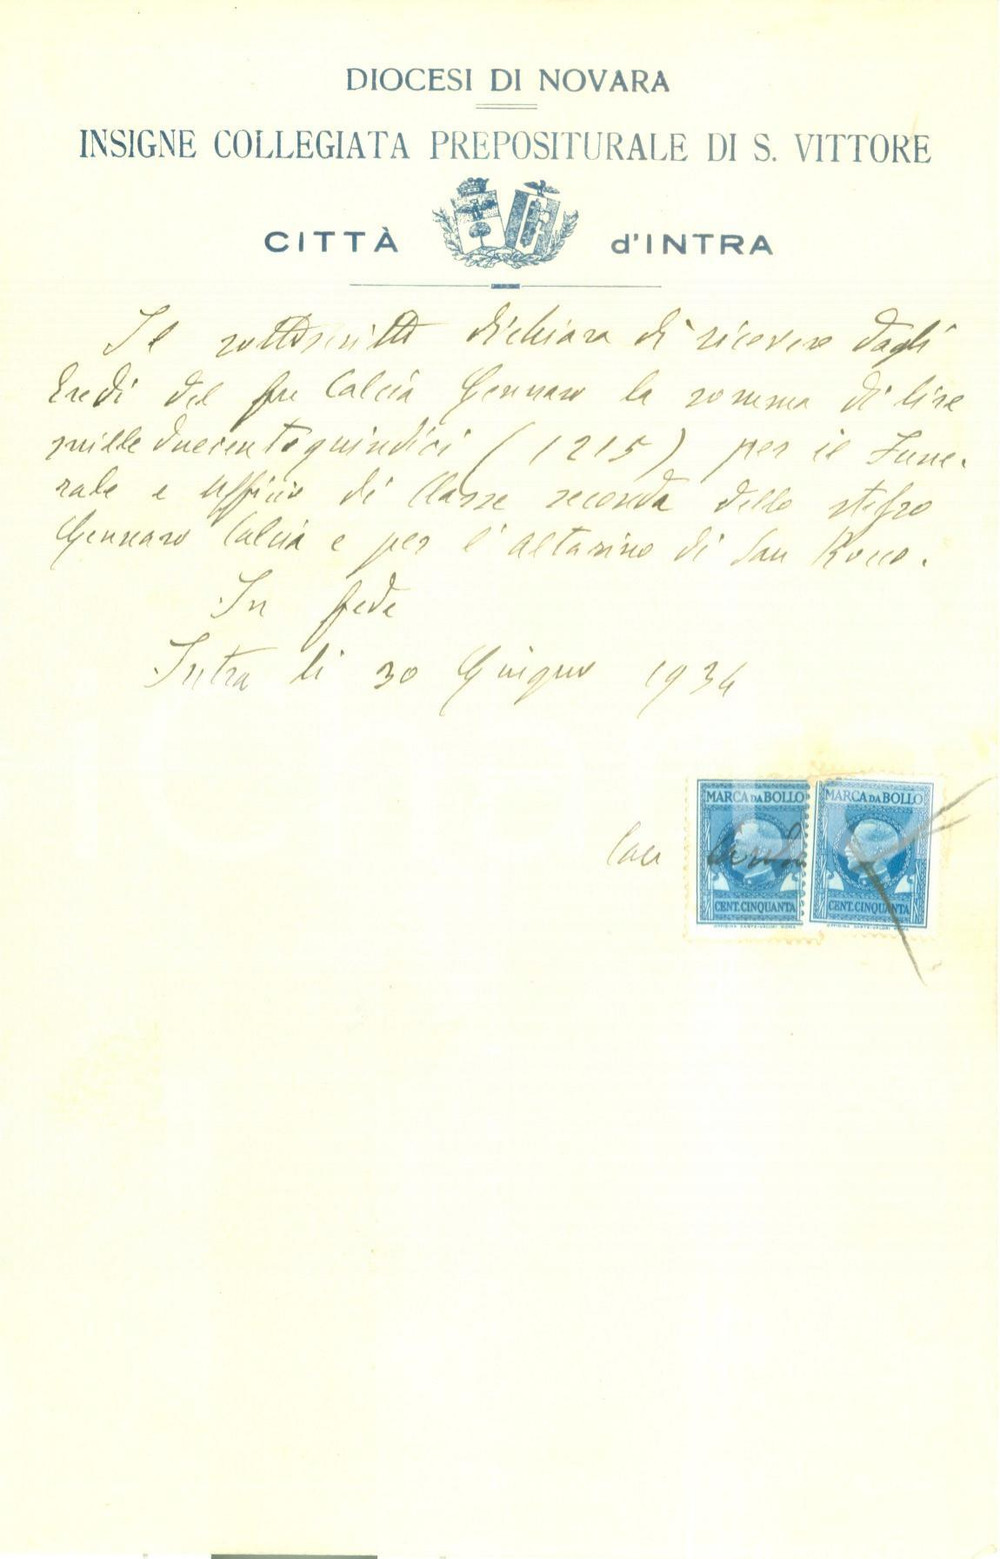 DIOCESI DI NOVARA
INSIGNE COLLEGIATA PREPOSITURALE DI S. VITTORE
CITTÀ d'INTRA
Il sottoscritto dichiara di ricevere dagli
Eredi del fu Calcia Gennaro la somma di lire
mille duecentoquindici (1215) per il Fune-
rale e Ufficio di Classe seconda dello stesso
Gennaro Calcia e per l'altarino di San Rocco.
In fede
Intra li 30 Giugno 1934
MARCA DA BOLLO MARCA DA BOLLO
CENT. CINQUANTA CENT. CINQUANTA